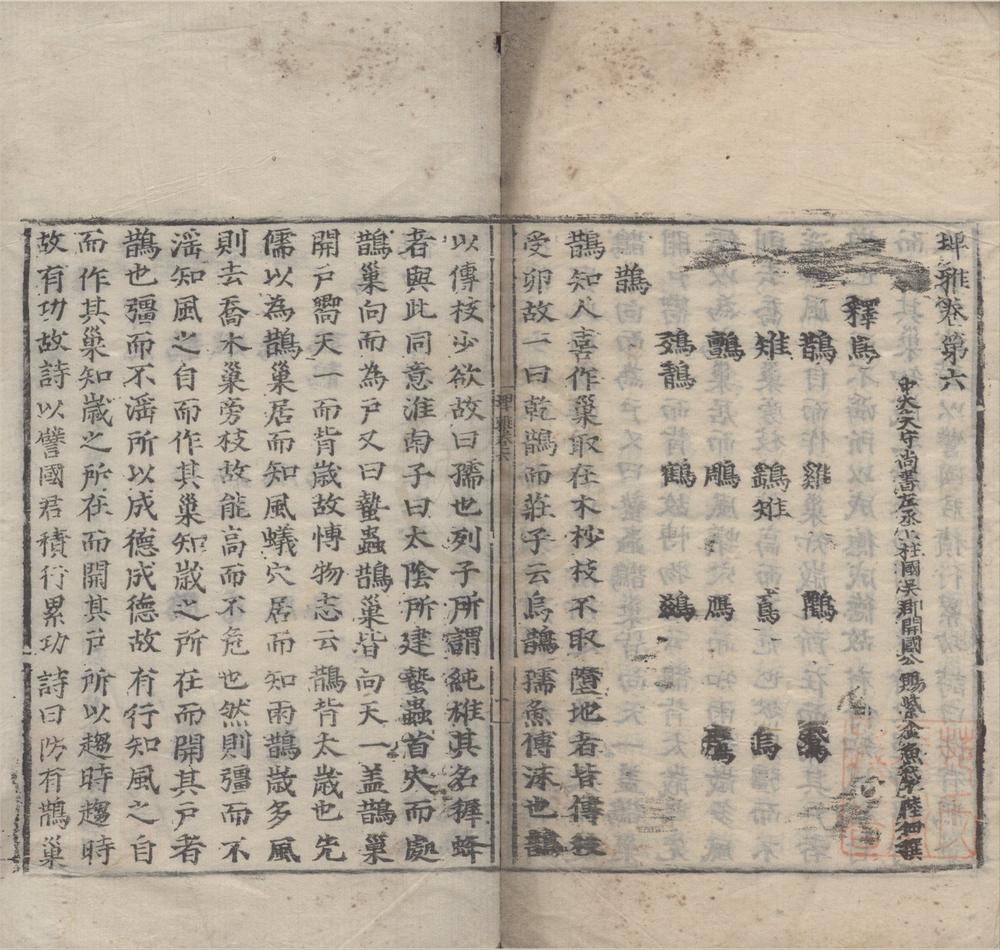 埤雅卷第六
中大夫守尚書左丞上柱國吳郡開國公賜紫金魚袋陸佃撰
釋鳥
鵲 雞
雉 鷮雉 鳶 烏
鸇 鵰 鴈 鷹
鵶鶄 鶴
鵲
鵲知人喜作巢取在木杪枝不取墮地者皆傳枝
受卵故一曰乾鵲而莊子云烏鵲孺魚傳沫也鵲
以傳枝少欲故曰孺也列子所謂純雄其名稺蜂
者與此同意淮南子曰太陰所建蟄蟲首穴而處
鵲巢向而為戶又曰蟄蟲鵲巢皆向天一盖鵲巢
開戶嚮天一而背歲故博物志云鵲背太歲也先
儒以為鵲巢居而知風蟻穴居而知雨鵲歲多風
則去喬木巢旁枝故能高而不危也然則彊而不
滛知風之自而作其巢知歲之所在而開其戶者
鵲也彊而不滛所以成德成德故有行知風之自
而作其巢知歲之所在而開其戶所以趨時趨時
故有功故詩以譬國君積行累功詩曰防有鵲巢
埤雅卷六